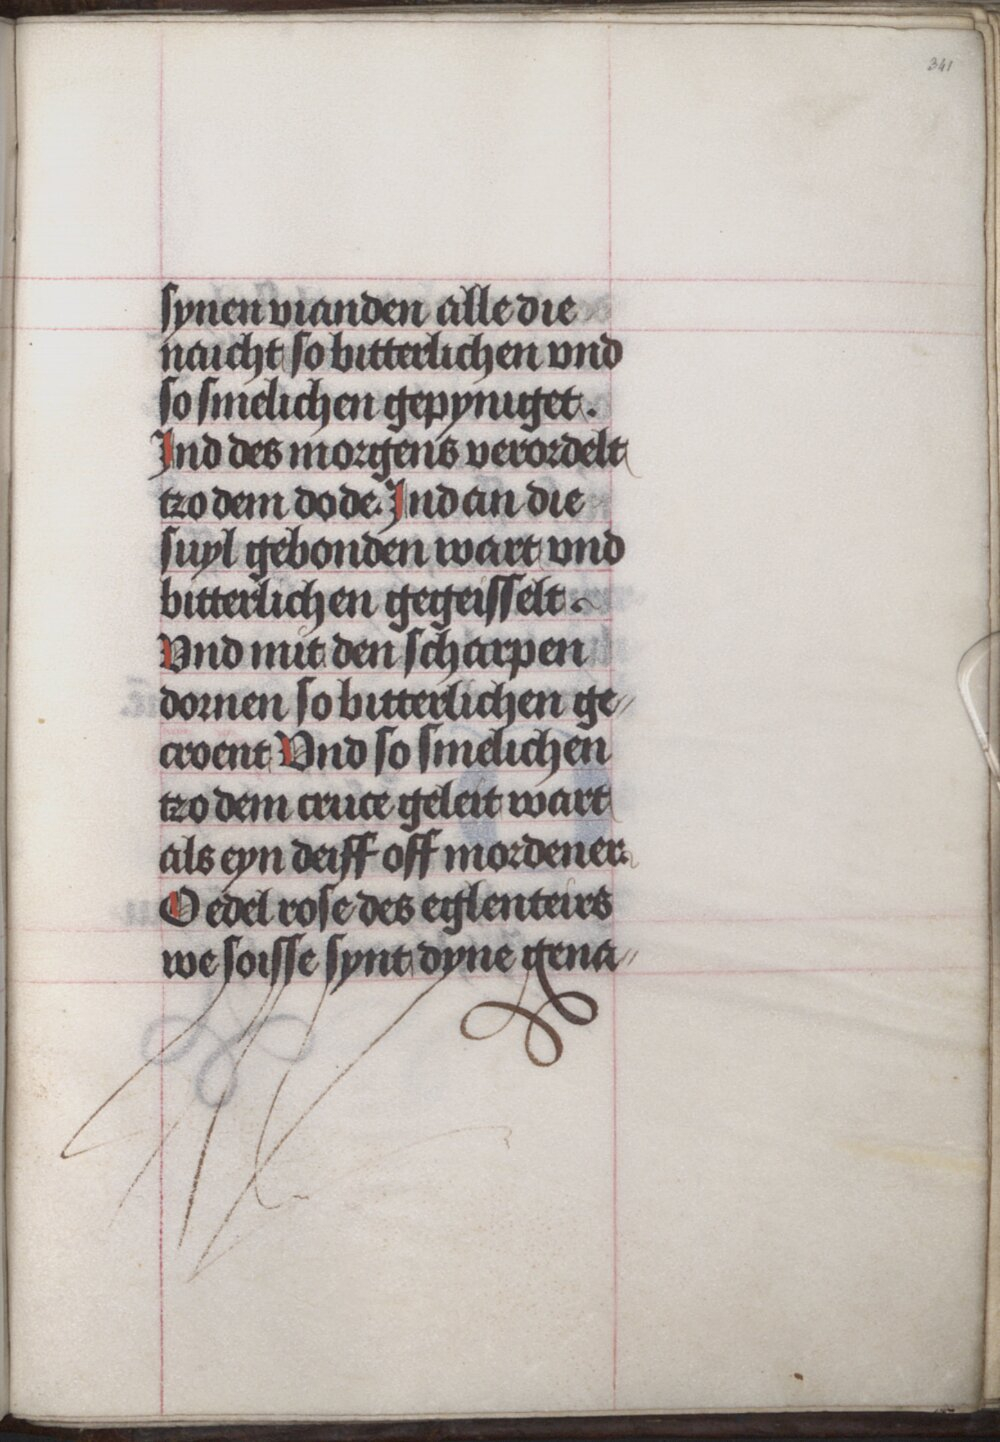 341
synen vianden alle die
naicht so bitterlichen vnd
so smelichen gepyniget.
Ind des morgens verordelt
tzo dem dode. Ind an die
suyl gebonden wart vnd
bitterlichen gegeisselt.
Vnd mit den scharpen
dornen so bitterlichen ge//
croent Vnd so smelichen
tzo dem cruce geleit wart
als eyn deiff off mordener.
O edel rose des eglenteirs
we soisse synt dyne gena//